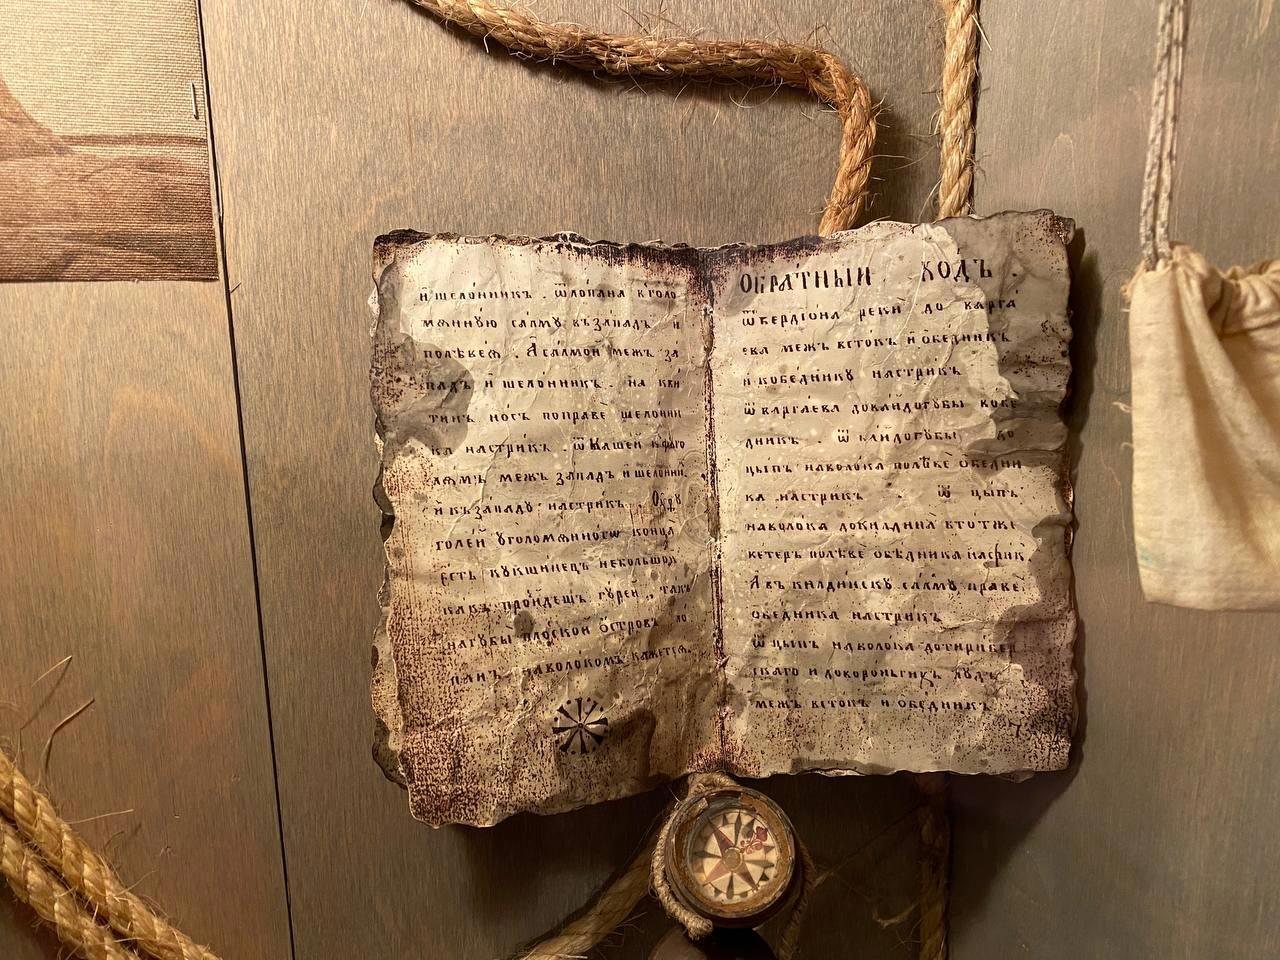 и҆ шело́нникъ . ѿлопана к голо
мѧнную салму къ за́падъ и
полѣвеѧ . А҆ салмои межъ за
падъ и҆ шело́нникъ . на кви
тинъ носъ поправе шелонни
ка настрикъ . ѿ Кашей
межъ западъ и҆ шелонни
и҆ къ за́паду настрикъ .
голей у҆голомѧнногѡ конца
є҆сть кукшинецъ небольшой
какъ пройдешъ го́рей , такъ
на губы плоской о҆стровъ ло
панъ наволокомъ кажетсѧ .
ОБРА́ТНЫЙ ХОДЪ .
ѿ берліона реки до карга
ева межъ встокъ и҆ обедникъ
и кобеднику настрикъ
ѿ каргаева до кандогубы кобе
дникъ . ѿ кандогубы до
цыпъ наволока полѣве обедни
ка настрикъ . ѿ цыпъ
наволока до килдина в тотже
ветеръ полѣве обѣдника настрик
А҆ въ килдинску салму праве
обѣдника настрикъ
ѿ цыпъ наволока до тирибер
скаго и до вороньгихъ лудъ
межъ встокъ и обедникъ